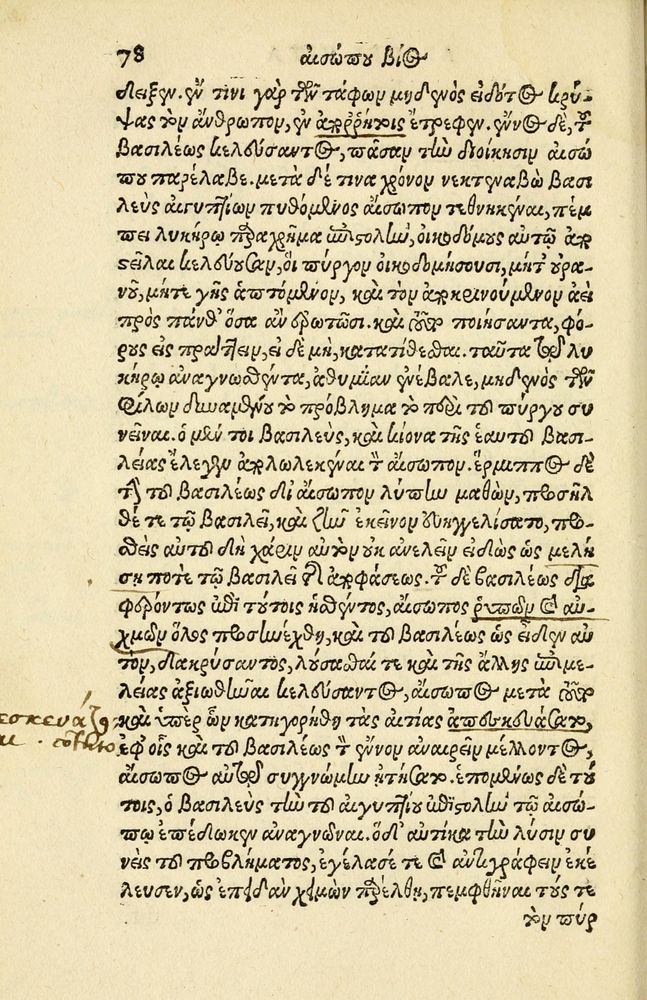 78 αἰσώπου βίος
λειξεν. ἔν τινι γὰρ τῶν τάφων μηδενὸς εἰδότος κρύ-
ψας τὸν ἄνθρωπον, ἐν ἀπορρήτοις ἔτρεφεν. ἔννος δὲ, τοῦ
βασιλέως κελεύσαντος, πᾶσαν τὴν διοίκησιν αἰσώ
που παρέλαβε. μετὰ δέ τινα χρόνον νεκτεναβὼ βασι
λεὺς αἰγυπτίων πυθόμενος αἴσωπον τεθνηκέναι, πέμ
πει λυκήρῳ παραχρῆμα ἐπιστολὴν, οἰκοδόμους αὐτῷ ἀπο
στεῖλαι κελεύουσαν, οἳ πύργον οἰκοδομήσουσι, μήτ' οὐρα-
νοῦ, μήτε γῆς ἁπτόμενον, καὶ τὸν ἀποκρινούμενον ἀεὶ
πρὸς πάνθ' ὅσα ἂν ἐρωτῶσι. καὶ τοῦτο ποιήσαντα, φό-
ρους εἰσπράττειν, εἰ δὲ μὴ, κατατίθεσθαι. ταῦτα τῷ λυ
κήρῳ ἀναγνωσθέντα, ἀθυμίαν ἐνέβαλε, μηδενὸς τῶν
φίλων δυναμένου τὸ πρόβλημα τὸ περὶ τοῦ πύργου συ
νεῖναι. ὁ μέν τοι βασιλεὺς, καὶ κίονα τῆς ἑαυτοῦ βασι-
λείας ἔλεγεν ἀπολωλεκέναι τὸν αἴσωπον. ἕρμιππος δὲ
τὴν τοῦ βασιλέως δι' αἴσωπον λύπην μαθὼν, προσῆλ
θέ τε τῷ βασιλεῖ, καὶ ζῆν ἐκεῖνον εὐηγγελίσατο, προσ-
θεὶς αὐτοῦ δὴ χάριν αὐτὸν οὐκ ἀνελεῖν εἰδὼς ὡς μελή
σῃ ποτὲ τῷ βασιλεῖ τῆς ἀποφάσεως. τοῦ δὲ βασιλέως δια
φερόντως ἐπὶ τούτοις ἡσθέντος, αἴσωπος ῥυπῶν καὶ αὐ-
χμῶν ὅλος προσηνέχθη, καὶ τοῦ βασιλέως ὡς εἶδεν αὐ
τὸν, δακρύσαντος, λούσασθαί τε καὶ τῆς ἄλλης ἐπιμε-
λείας ἀξιωθῆναι κελεύσαντος, αἴσωπος μετὰ τοῦτο
καὶ ὑπὲρ ὧν κατηγορήθη τὰς αἰτίας ἀπεσκευάσατο,
ἐφ' οἷς καὶ τοῦ βασιλέως τὸν ἔννον ἀναιρεῖν μέλλοντος,
αἴσωπος αὐτῷ συγγνώμην ᾐτήσατο. ἑπομένως δὲ τού
τοις, ὁ βασιλεὺς τὴν τοῦ αἰγυπτίου ἐπιστολὴν τῷ αἰσώ-
πῳ ἐπέδωκεν ἀναγνῶναι. ὁ δ' αὐτίκα τὴν λύσιν συ
νεὶς τοῦ προβλήματος, ἐγέλασέ τε καὶ ἀντιγράφειν ἐκέ
λευσεν, ὡς ἐπειδὰν χειμὼν παρέλθῃ, πεμφθῆναι τούς τε
τὸν πύρ